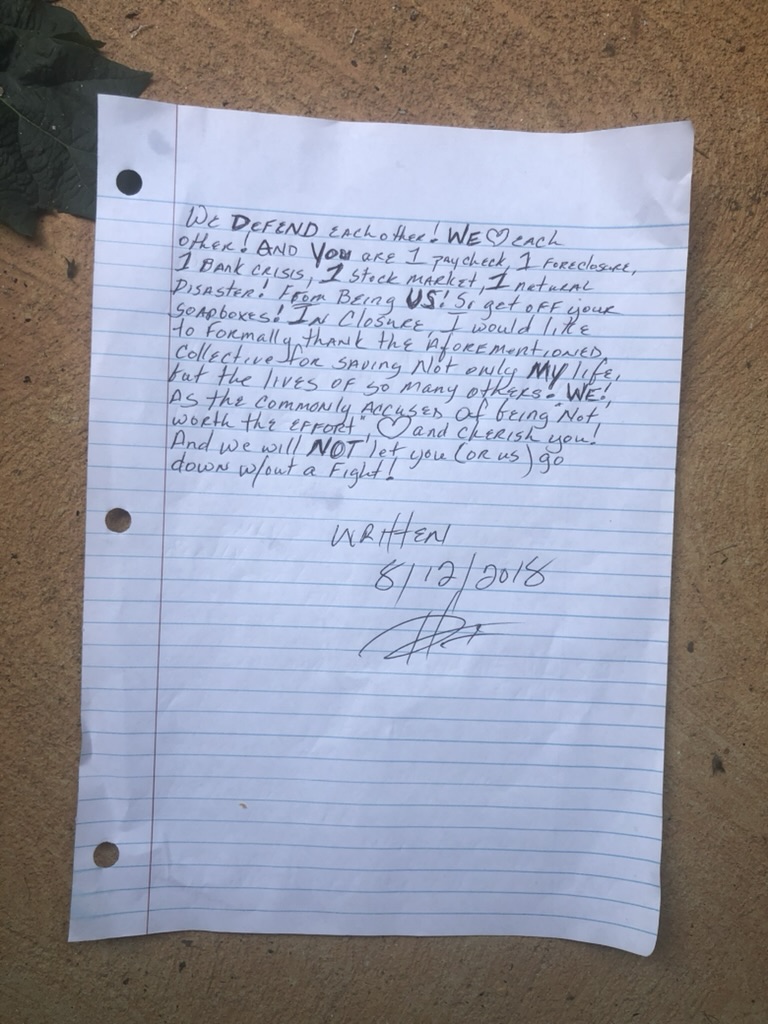 We DEFEND each other! WE ♡ each
other! AND YOU are 1 paycheck, 1 foreclosure,
1 BANK CRISIS, 1 Stock MARKET, 1 natural
DISASTER! From Being US! So get off your
soapboxes! IN Closure, I would like
to formally thank the aforementioned
collective for saving Not only MY life,
but the lives of so many others! WE!
As the commonly Accused of being "Not
worth the EFFORT" ♡ and cherish you!
And we will NOT let you (or us) go
down w/out a Fight!
WRITTEN
8/12/2018